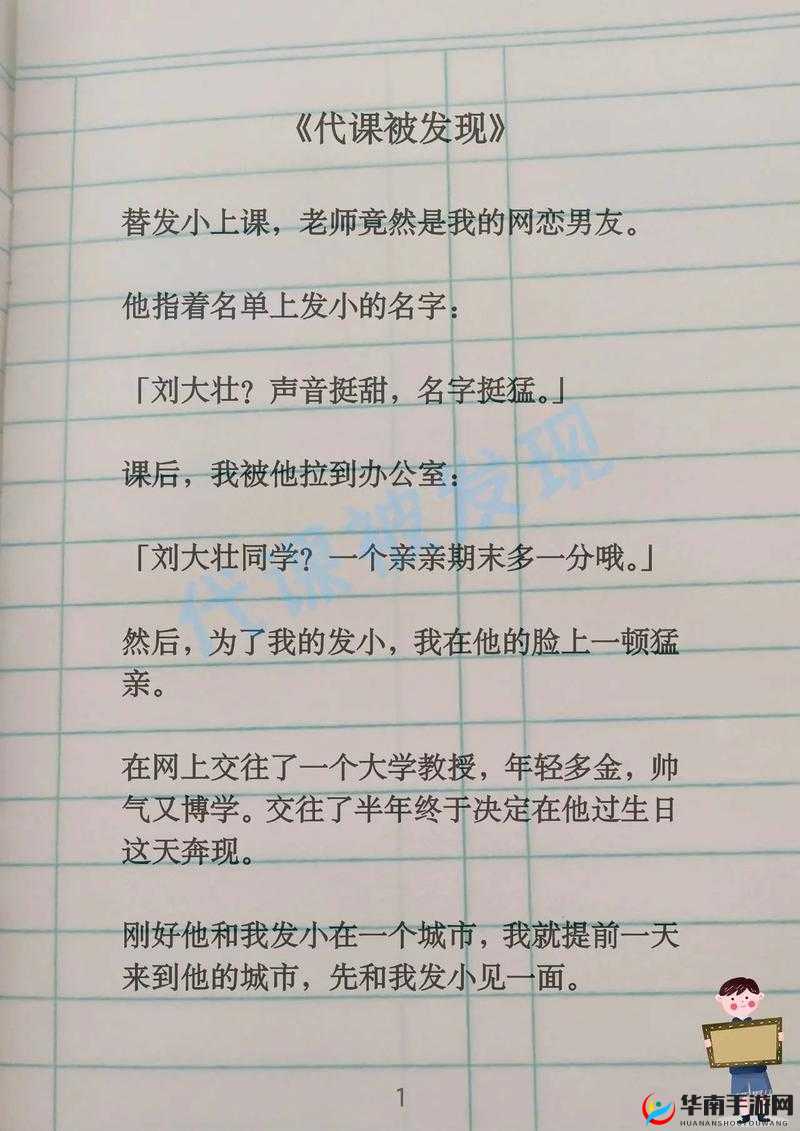 《代课被发现》
替发小上课，老师竟然是我的网恋男友。
他指着名单上发小的名字：
「刘大壮？声音挺甜，名字挺猛。」
课后，我被他拉到办公室：
「刘大壮同学？一个亲亲期末多一分哦。」
然后，为了我的发小，我在他的脸上一顿猛
亲。
在网上交往了一个大学教授，年轻多金，帅
气又博学。交往了半年终于决定在他过生日
这天奔现。
刚好他和我发小在一个城市，我就提前一天
来到他的城市，先和我发小见一面。
代课被发现
1
华南手游网
HUANANSHOUYOUWANG